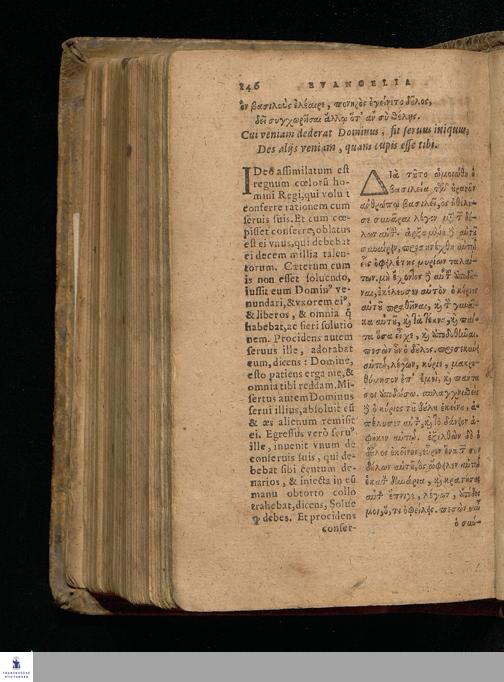 246 EVANGELIA
ὃν βασιλεὺς ἐλέαιρε, πονηρὸς ἐγείνετο δοῦλος,
δεῖ συγχωρῆσαι ἄλλῳ
Cui veniam dederat Dominus, fit seruus iniquus,
Des alijs veniam, quam cupis esse tibi.
IDeò assimilatum est
regnum cœlorũ ho-
mini Regi, qui voluit
conferre rationem cum
seruis suis. Et cum cœ-
pisset conferre, oblatus
est ei vnus, qui debebat
ei decem millia talen-
torum. Cæterum cum
is non esset soluendo,
iussit eum Dominꝰ ve-
nundari, & vxorem eiꝰ,
& liberos, & omnia q̃
habebat, ac fieri solutio
nem. Procidens autem
seruus ille, adorabat
eum, dicens: Domine,
esto patiens erga me, &
omnia tibi reddam. Mi-
sertus autem Dominus
serui illius, absoluit eũ
& æs alienum remisit
ei. Egressus verò seruꝰ
ille, inuenit vnum de
conseruis suis, qui de-
bebat sibi centum de-
narios, & iniecta in eũ
manu obtorto collo
trahebat, dicens, Solue
debes. Et procidens
conser-
Διὰ τοῦτο ὡμοιώθη ἡ
βασιλεία τῶν οὐρανῶν
ἀνθρώπῳ βασιλεῖ, ὃς ἠθέλη-
σε συνᾶραι λόγον μετὰ τ̃ δού-
λων αὐτοῦ. ἀρξαμένου δὲ αὐτοῦ
συναίρειν, προσηνέχθη αὐτῷ
εἷς ὀφειλέτης μυρίων ταλάν-
των. μὴ ἔχοντος δὲ αὐτοῦ ἀποδοῦ-
ναι, ἐκέλευσεν αὐτὸν ὁ κύριος
αὐτοῦ πραθῆναι, καὶ τ̃ γυναῖ-
κα αὐτοῦ, καὶ τὰ τέκνα, καὶ πάν-
τα ὅσα εἶχε, καὶ ἀποδοθῆναι.
πεσὼν οὖν ὁ δοῦλος, προσεκύνει
αὐτῷ, λέγων, κύριε, μακρο-
θύμησον ἐπ' ἐμοὶ, καὶ πάντα
σοι ἀποδώσω. σπλαγχνισθεὶς
δὲ ὁ κύριος τοῦ δούλου ἐκείνου, ἀ-
πέλυσεν αὐτὸν, καὶ τὸ δάνειον ἀ-
φῆκεν αὐτῷ. ἐξελθὼν δὲ ὁ
δοῦλος ἐκεῖνος, εὗρεν ἕνα τ̃ συν
δούλων αὐτοῦ, ὃς ὤφειλεν αὐτῷ
ἑκατὸν δηνάρια, καὶ κρατήσας
αὐτὸν ἔπνιγε, λέγων, ἀπόδος
μοι, ὅ, τι ὀφείλεις. πεσὼν οὖν
ὁ σύν-